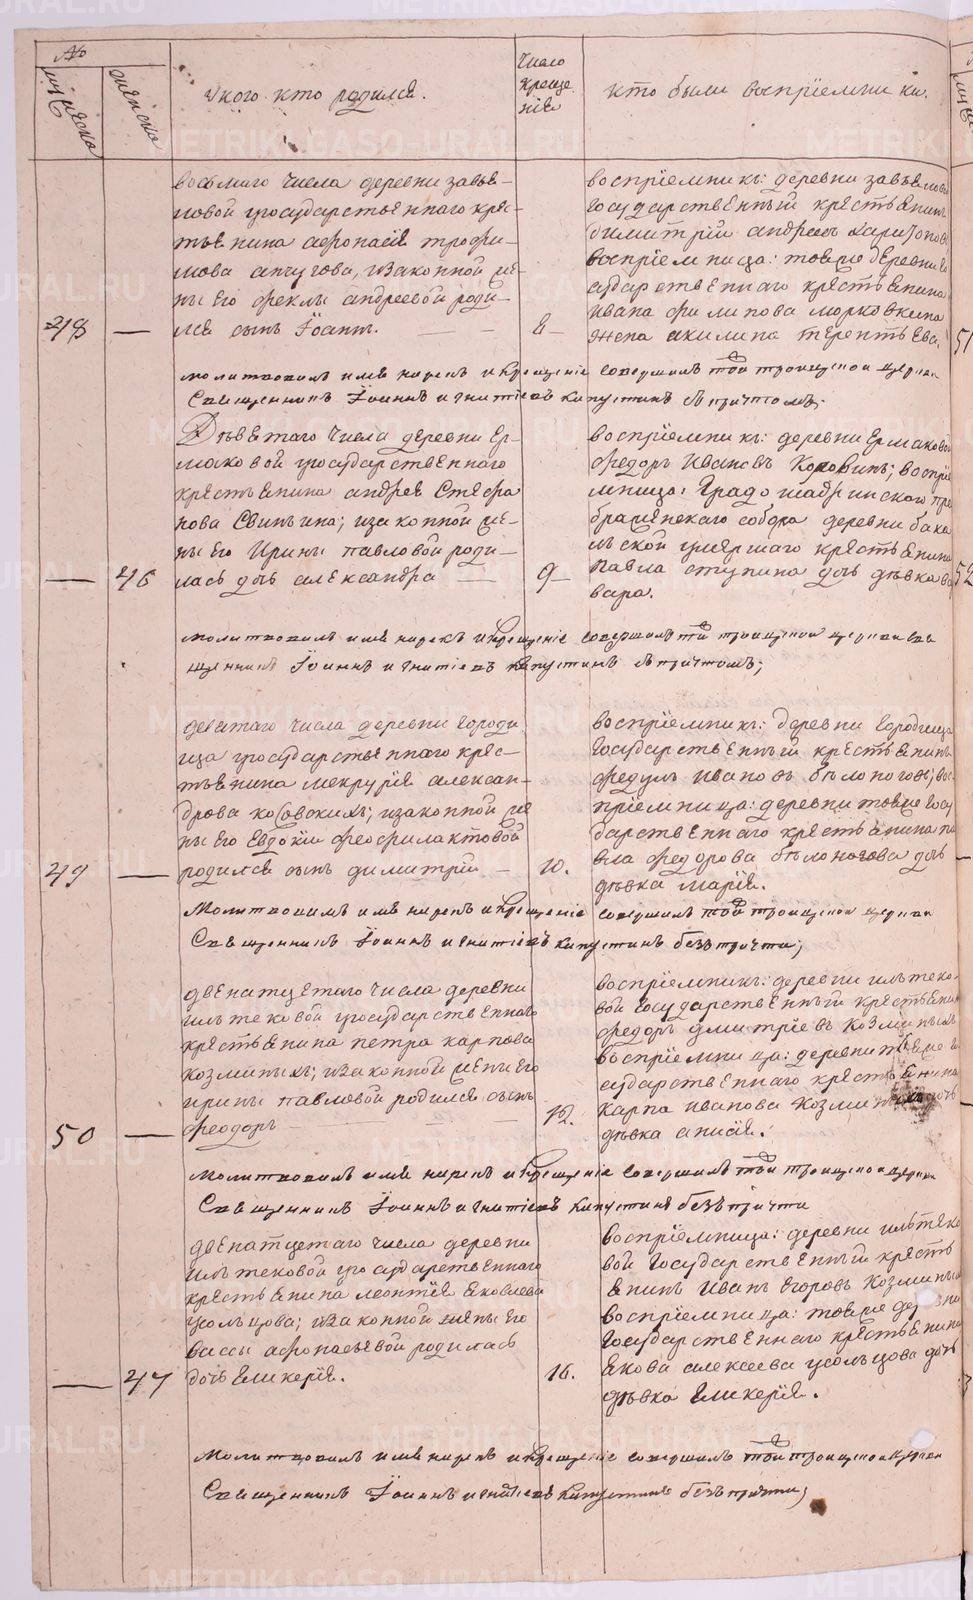 №
мужеска
женска
У кого кто родился.
Число
креще
нія
Кто были воспріемники.
восьмаго числа деревни завья-
ловой государственнаго крес-
тьянина афонасія трофи-
мова
законной же-
ны его феклы андреевой роди-
лся сынъ Іоаннъ.
48
8
воспріемникъ: деревни завьяловой
государственный крестьянинъ
димитрій андреевъ
воспріемница: тояже деревни го
сударственнаго крестьянина
ивана филипова морковкина
жена акилина терентьева.
молитвовалъ имя нарекъ и крещеніе совершилъ той троицкой церкви
Священникъ Іоаннъ игнатіевъ капустинъ съ причтомъ;
Девятаго числа деревни Ер-
маковой государственнаго
крестьянина андрея Стефа
нова Свиньина; и законной же-
ны его Ирины павловой роди-
лась дочь александра
46
9
воспріемникъ: деревни Ермаковой
федоръ Ивановъ Коровинъ; воспріе
мница: Градошадринскаго пре
ображенскаго собора деревни бака
льской умершаго крестьянина
Павла ступина дочь девка вар
вара.
молитвовалъ имя нарекъ и крещеніе совершилъ той троицкой церкви Свя
щенникъ Іоаннъ игнатіевъ капустинъ съ причтомъ;
девятаго числа деревни городи
ща государственнаго крес-
тьянина меркурія алексан-
дрова
законной же
ны его Евдокіи феофилактовой
родился сынъ димитрій
49
10.
воспріемникъ: деревни городища
государственный крестьянинъ
федулъ ивановъ белоноговъ; вос
пріемница: деревни тояже госу
дарственнаго крестьянина па
вла федорова белоногова дочь
девка марія.
Молитвовалъ имя нарекъ и крещеніе совершилъ той троицкой церкви
Священникъ Іоаннъ игнатіевъ капустинъ безъ причта;
двенатцетаго числа деревни
ильтековой государственнаго
крестьянина петра карпова
козминыхъ; и законной жены его
ирины павловой родился сынъ
феодоръ
50
12.
воспріемникъ: деревни ильтеко-
вой государственный крестьянинъ
федоръ дмитріевъ козминыхъ
воспріемница: деревни тояже го
сударственнаго крестьянина
карпа иванова козминыхъ дочь
девка анисія.
молитвовалъ имя нарекъ и крещеніе совершилъ той троицкой церкви
Священникъ Іоаннъ игнатіевъ капустинъ безъ причта
двенатцетаго числа деревни
ильтековой государственнаго
крестьянина леонтія яковлева
усольцова; и законной жены его
вассы афонасьевой родилась
дочь гликерія.
47
16.
воспріемница: деревни ильтеко
вой государственный кресть
янинъ иванъ Егоровъ козминыхъ
воспріемница: тояже деревни
государственнаго крестьянина
якова алексеева усольцова дочь
девка гликерія.
Молитвовалъ имя нарекъ и крещеніе совершилъ той троицкой церкви
Священникъ Іоаннъ игнатіевъ капустинъ безъ причта;
51
52
METRIKI.GASO-URAL.RU